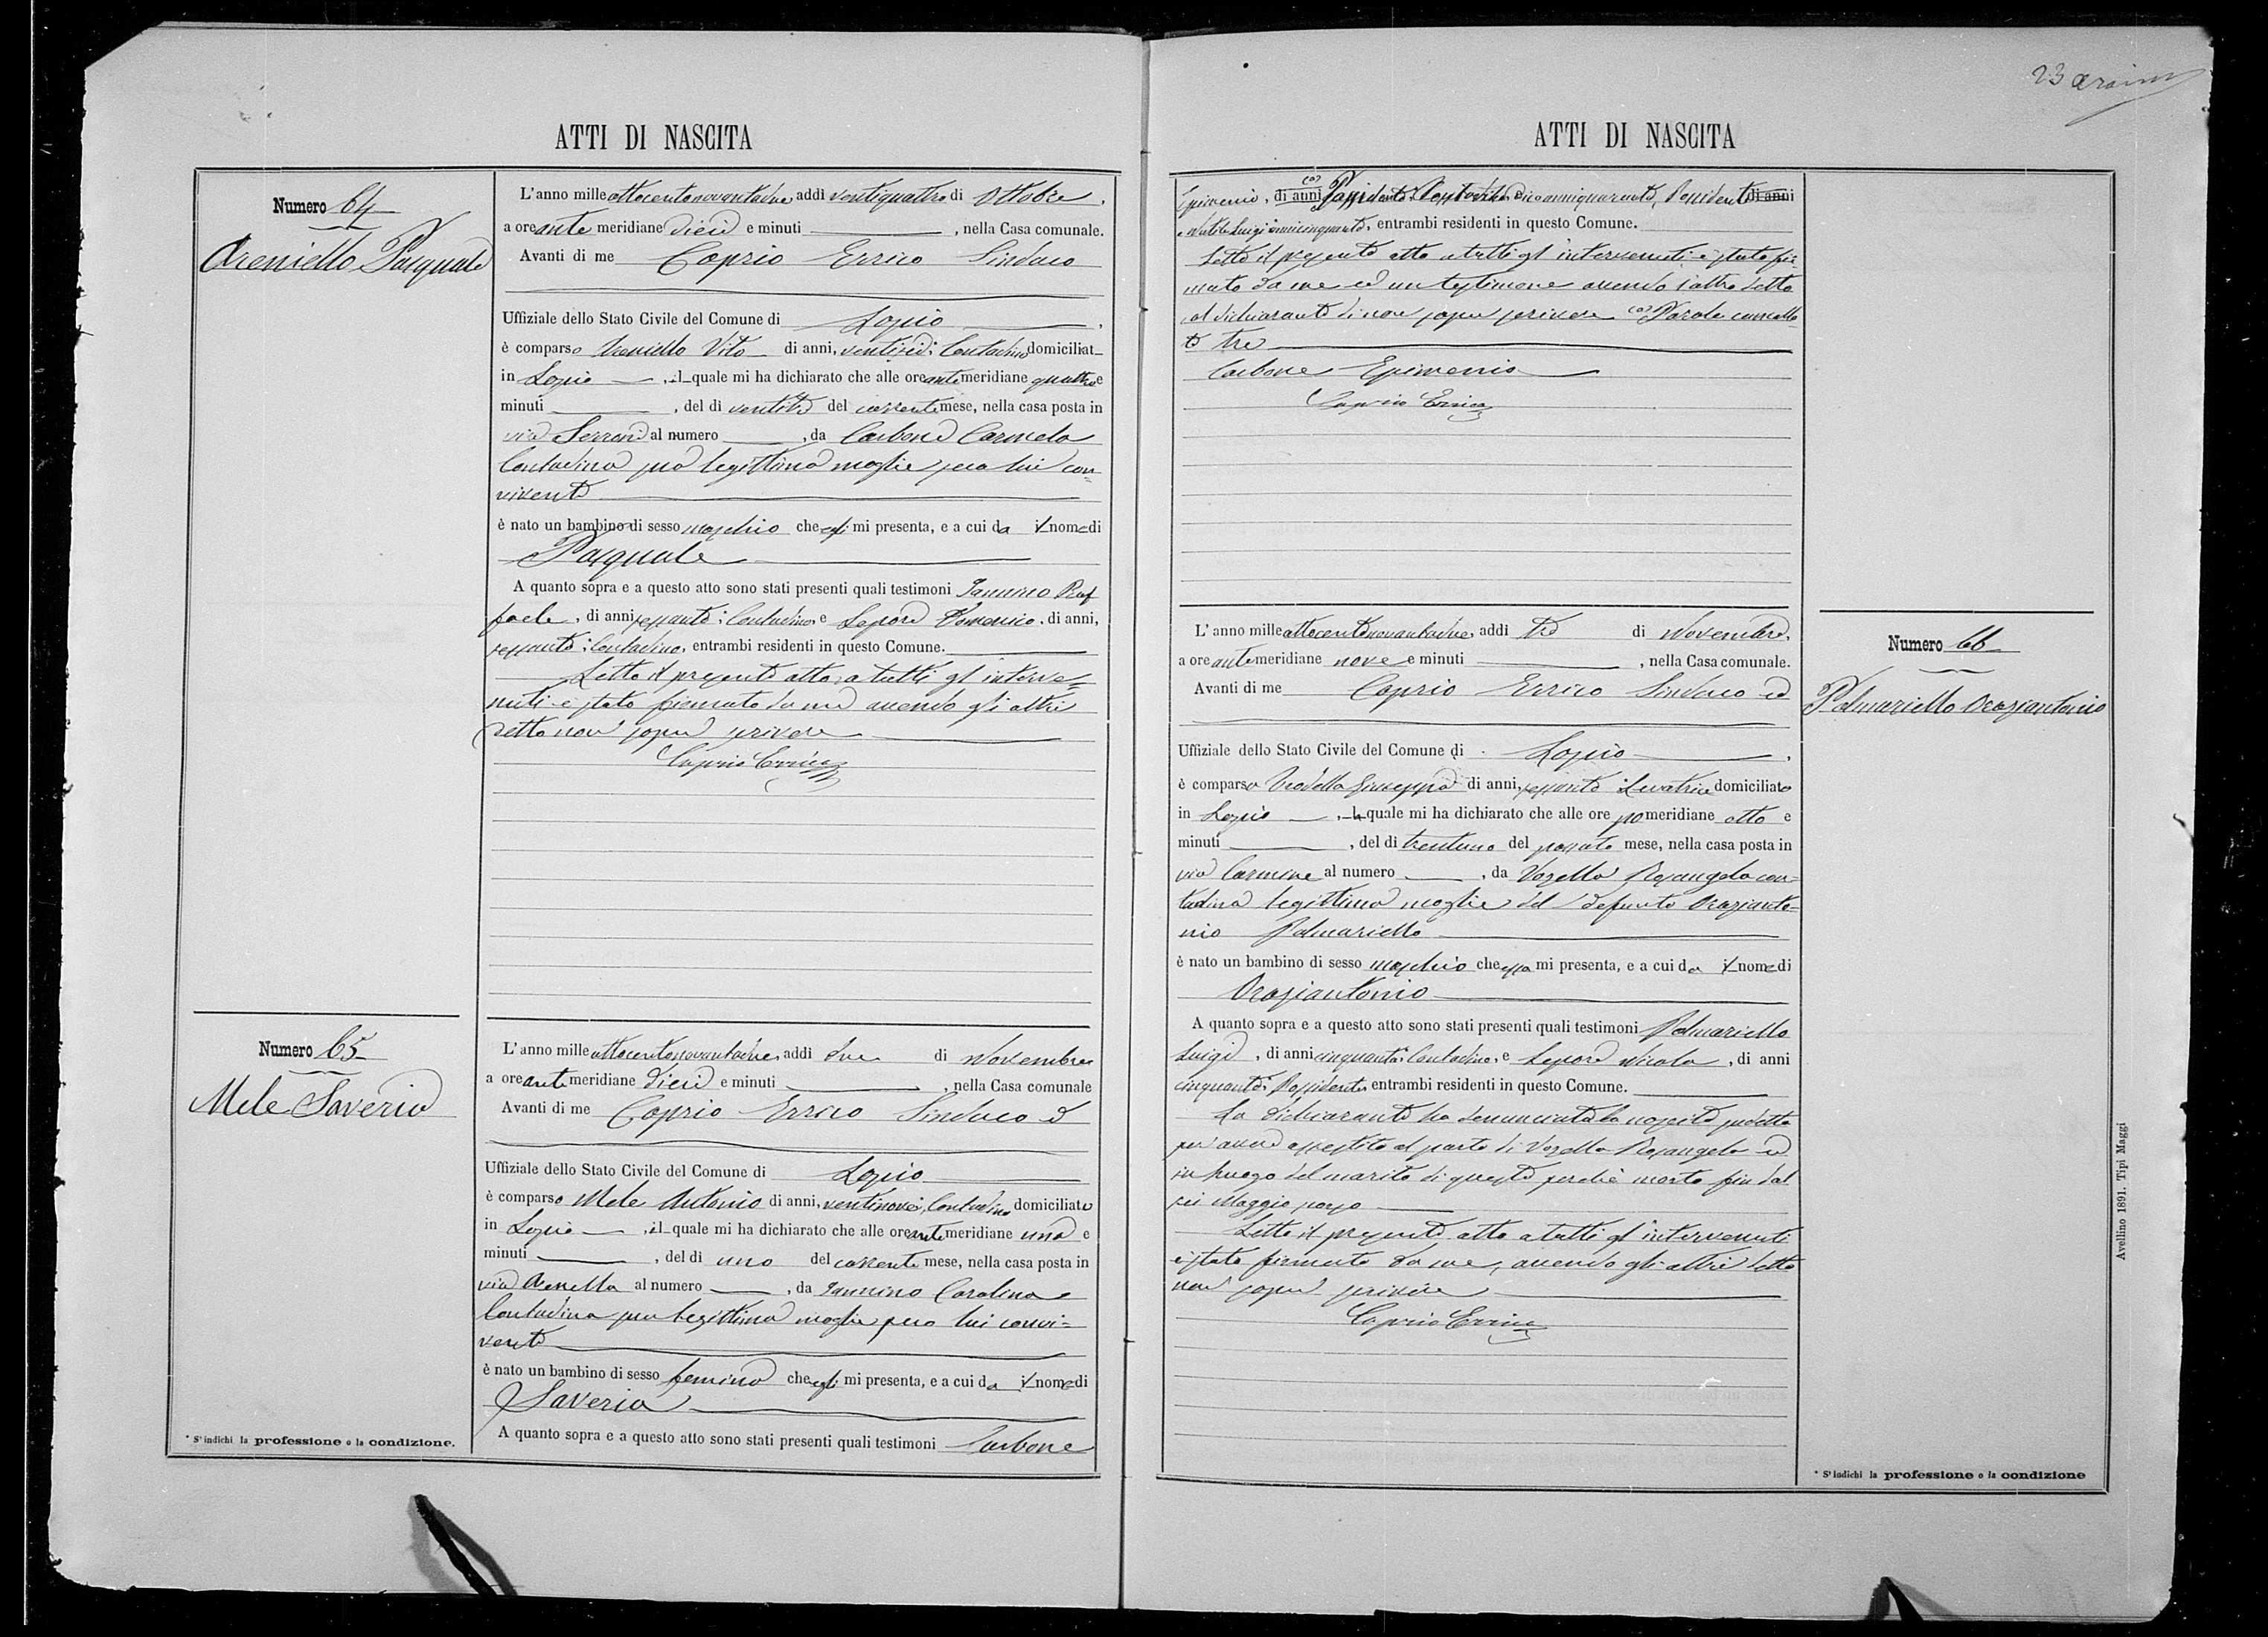 ATTI DI NASCITA
Numero 64
Areniello Pasquale
L'anno mille ottocentonovantadue, addì ventiquattro di Ottobre,
a ore ante meridiane dieci e minuti , nella Casa comunale.
Avanti di me Caprio Errico Sindaco
Uffiziale dello Stato Civile del Comune di Lapio.
è comparso Areniello Vito di anni, ventisei; Contadino domiciliat
in Lapio , il quale mi ha dichiarato che alle ore ante meridiane quattro e
minuti , del dì ventitre del corrente mese, nella casa posta in
via Serrone al numero , da Carbone Carmela
Contadina sua legittima moglie seco lui con=
vivente
è nato un bambino di sesso maschio che egli mi presenta, e a cui da il nome di
Pasquale
A quanto sopra e a questo atto sono stati presenti quali testimoni Iannino Raf
faele, di anni sessanta; Contadino, e Lepore Domenico, di anni,
sessanta; Contadino, entrambi residenti in questo Comune.
Letto il presente atto a tutti gl' interve=
nuti è stato firmato da me avendo gli altri
detto non saper scrivere
Caprio Errico
Numero 65
Mele Saveria
L'anno mille ottocentonovantadue, addì due di Novembre
a ore ante meridiane dieci e minuti , nella Casa comunale
Avanti di me Caprio Errico Sindaco ed
Uffiziale dello Stato Civile del Comune di Lapio
è comparso Mele Antonio di anni, ventinove; Contadino domiciliato
in Lapio , il quale mi ha dichiarato che alle ore ante meridiane una e
minuti , del dì uno del corrente mese, nella casa posta in
via Arenella al numero , da Iannino Carolina
Contadina sua legittima moglie seco lui convi=
vente
è nato un bambino di sesso femino che egli mi presenta, e a cui da il nome di
Saveria
A quanto sopra e a questo atto sono stati presenti quali testimoni Carbone
* S'indichi la professione o la condizione.
ATTI DI NASCITA
Epimenio, di anni Possidente e di anni quaranta, Possidente di anni
e Natale Luigi anni cinquanta, entrambi residenti in questo Comune.
Letto il presente atto a tutti gl' intervenuti è stato fir
mato da me ed un testimone avendo l'altro detto
al dichiarante di non saper scrivere (a) Parole cancella
te tre
Carbone Epimenio
Caprio Errico
Numero 66
Palmariello Oraziantonio
L' anno mille ottocentonovantadue, addì tre di Novembre,
a ore ante meridiane nove e minuti , nella Casa comunale.
Avanti di me Caprio Errico Sindaco ed
Uffiziale dello Stato Civile del Comune di Lapio.
è comparsa Giuseppa di anni, sessanta; Levatrice domiciliata
in Lapio , la quale mi ha dichiarato che alle ore pomeridiane otto e
minuti , del dì trentuno del passato mese, nella casa posta in
via Carmine al numero , da Vozella Rosangela con=
tadina legittima moglie del defunto Orazianto=
nio Palmariello
è nato un bambino di sesso maschio che essa mi presenta, e a cui da il nome di
Oraziantonio
A quanto sopra e a questo atto sono stati presenti quali testimoni Palmariello
Luigi, di anni cinquanta; Contadino, e Lepore Nicola, di anni
cinquanta; Possidente, entrambi residenti in questo Comune.
La dichiarante ha denunciata la nascita sudetta
per avere assistito al parto di Vozella Rosangela ed
in luogo del marito di questa perchè morto fin dal
sei Maggio
Letto il presente atto a tutti gl' intervenuti
è stato firmato da me, avendo gli altri detto
non saper scrivere
Caprio Errico
* S'indichi la professione o la condizione
Avellino 1891. Tipi Maggi